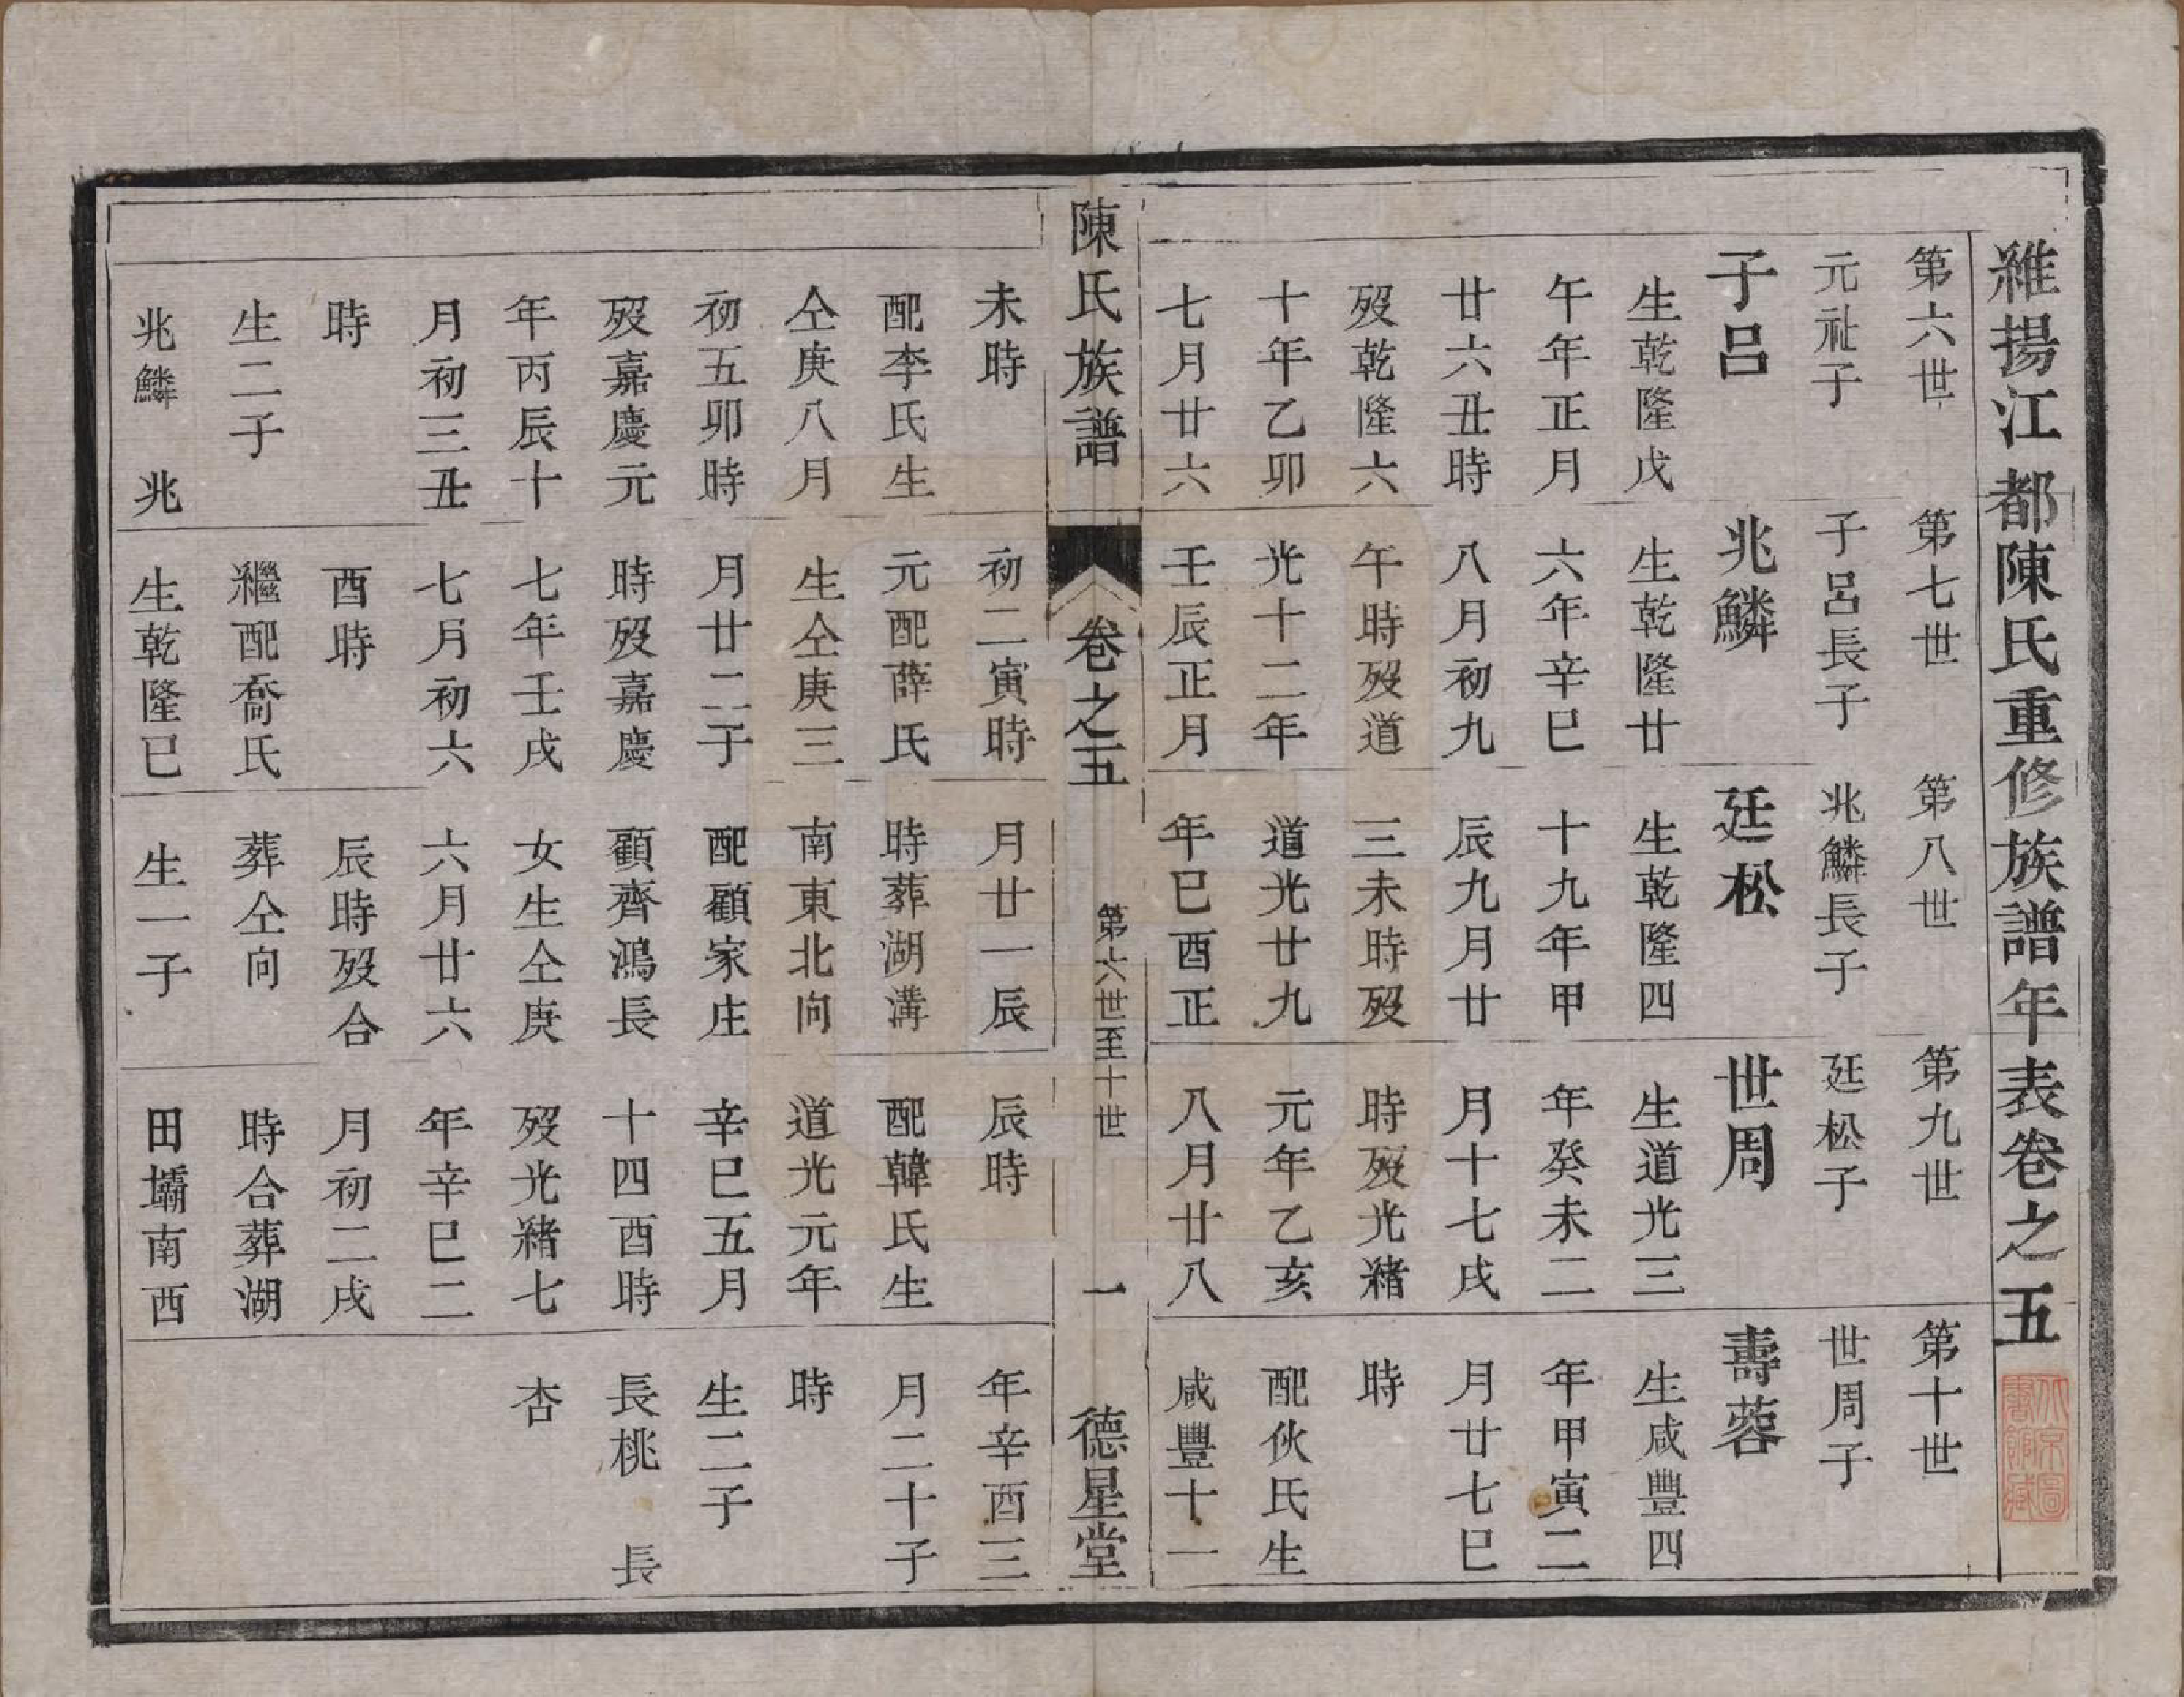 維揚江都陳氏重修族譜年表卷之五
第六世
元祉子
子呂
生乾隆戊
午年正月
廿六丑時
歿乾隆六
十年乙卯
七月廿六
未時
配李氏生
仝庚八月
初五卯時
歿嘉慶元
年丙辰十
月初三丑
時
生二子
兆鱗　兆
第七世
子呂長子
兆鱗
生乾隆廿
六年辛巳
八月初九
午時歿道
光十二年
壬辰正月
初二寅時
元配薛氏
生仝庚三
月廿二子
時歿嘉慶
七年壬戌
七月初六
酉時
繼配喬氏
生乾隆巳
第八世
兆鱗長子
廷松
生乾隆四
十九年甲
辰九月廿
三未時歿
道光廿九
年巳酉正
月廿一辰
時葬湖溝
南東北向
配顧家庄
顧齊鴻長
女生仝庚
六月廿六
辰時歿合
葬仝向
生一子
第九世
廷松子
世周
生道光三
年癸未二
月十七戌
時歿光緒
元年乙亥
八月廿八
辰時
配韓氏生
道光元年
辛巳五月
十四酉時
歿光緒七
年辛巳二
月初二戌
時合葬湖
田壩南西
第十世
世周子
壽蓉
生咸豐四
年甲寅二
月廿七巳
時
配伙氏生
咸豐十一
年辛酉三
月二十子
時
生二子
長桃　長
杏
陳氏族譜
卷之五
第六世至十世
一
德星堂
北京圖書館藏